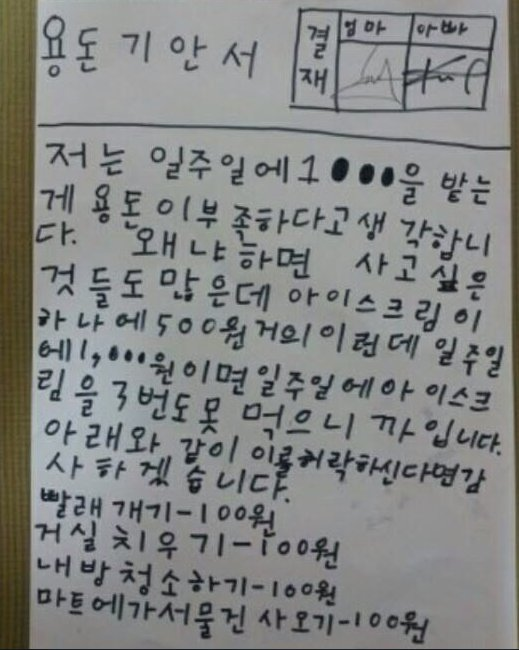 용돈 기안서
결재 엄마 아빠
저는 일주일에 1000을 받는
게 용돈이 부족하다고 생각합니
다. 왜냐하면 사고 싶은
것들도 많은데 아이스크림이
하나에 500원 거의 이런데 일주일
에 1,000원이면 일주일에 아이스크
림을 3번도 못 먹으니까입니다.
아래와 같이 이를 허락하신다면 감
사하겟습니다.
빨래 개기-100원
거실 치우기-100원
내방 청소하기-100원
마트에가서 물건 사오기-100원